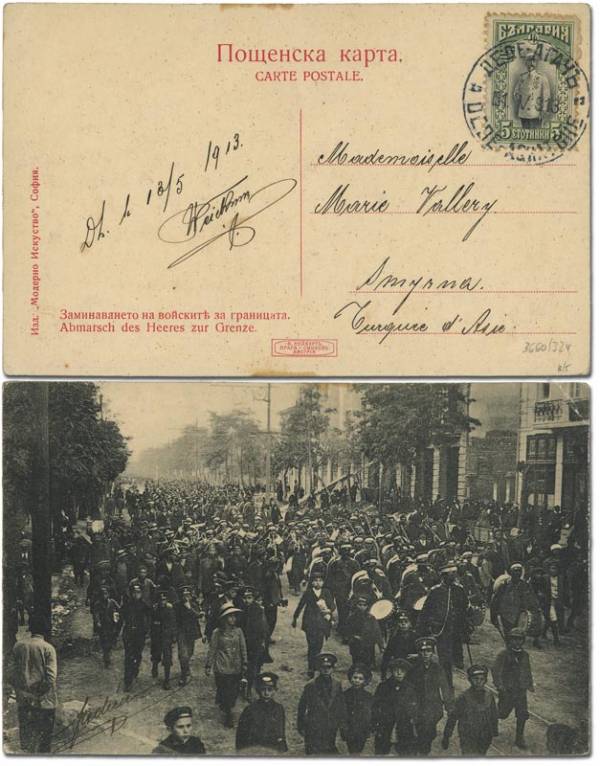 Пощенска карта.
CARTE POSTALE.
БЪЛГАРИЯ
ДЕДЕ-АГАЧЪ
5 СТОТИНКИ 5
Dh. h 13/5 1913.
Mademoiselle
Marie Vallery.
Smyrna.
Turquie d'Asie.
Изд. „Модерно Искуство", София.
Заминаването на войскитѣ за границата.
Abmarsch des Heeres zur Grenze.
3660/324